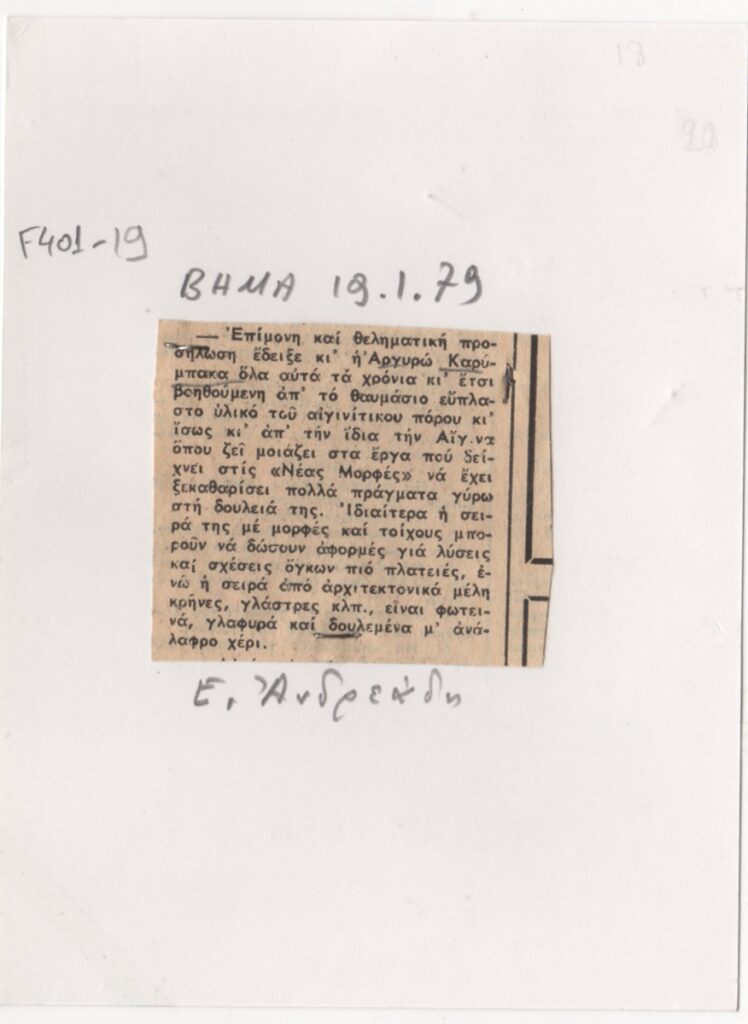 18
20
F401-19
ΒΗΜΑ 19.1.79
— Ἐπίμονη καί θεληματική προ-
σήλωση ἔδειξε κι' ἡ Ἀργυρώ Καρύ-
μπακα ὅλα αὐτά τά χρόνια κι' ἔτσι
βοηθούμενη ἀπ' τό θαυμάσιο εὔπλα-
στο ὑλικό τοῦ αἰγινίτικου πόρου κι'
ἴσως κι' ἀπ' τήν ἴδια τήν Αἴγινα
ὅπου ζεῖ μοιάζει στα ἔργα πού δεί-
χνει στίς «Νέας Μορφές» νά ἔχει
ξεκαθαρίσει πολλά πράγματα γύρω
στή δουλειά της. Ἰδιαίτερα ἡ σει-
ρά της μέ μορφές καί τοίχους μπο-
ροῦν νά δώσουν ἀφορμές γιά λύσεις
καί σχέσεις ὄγκων πιό πλατειές, ἐ-
νώ ἡ σειρά ἀπό ἀρχιτεκτονικά μέλη
κρῆνες, γλάστρες κλπ., εἶναι φωτει-
νά, γλαφυρά καί δουλεμένα μ' ἀνά-
λαφρο χέρι.
Ε. Ἀνδρεάδη